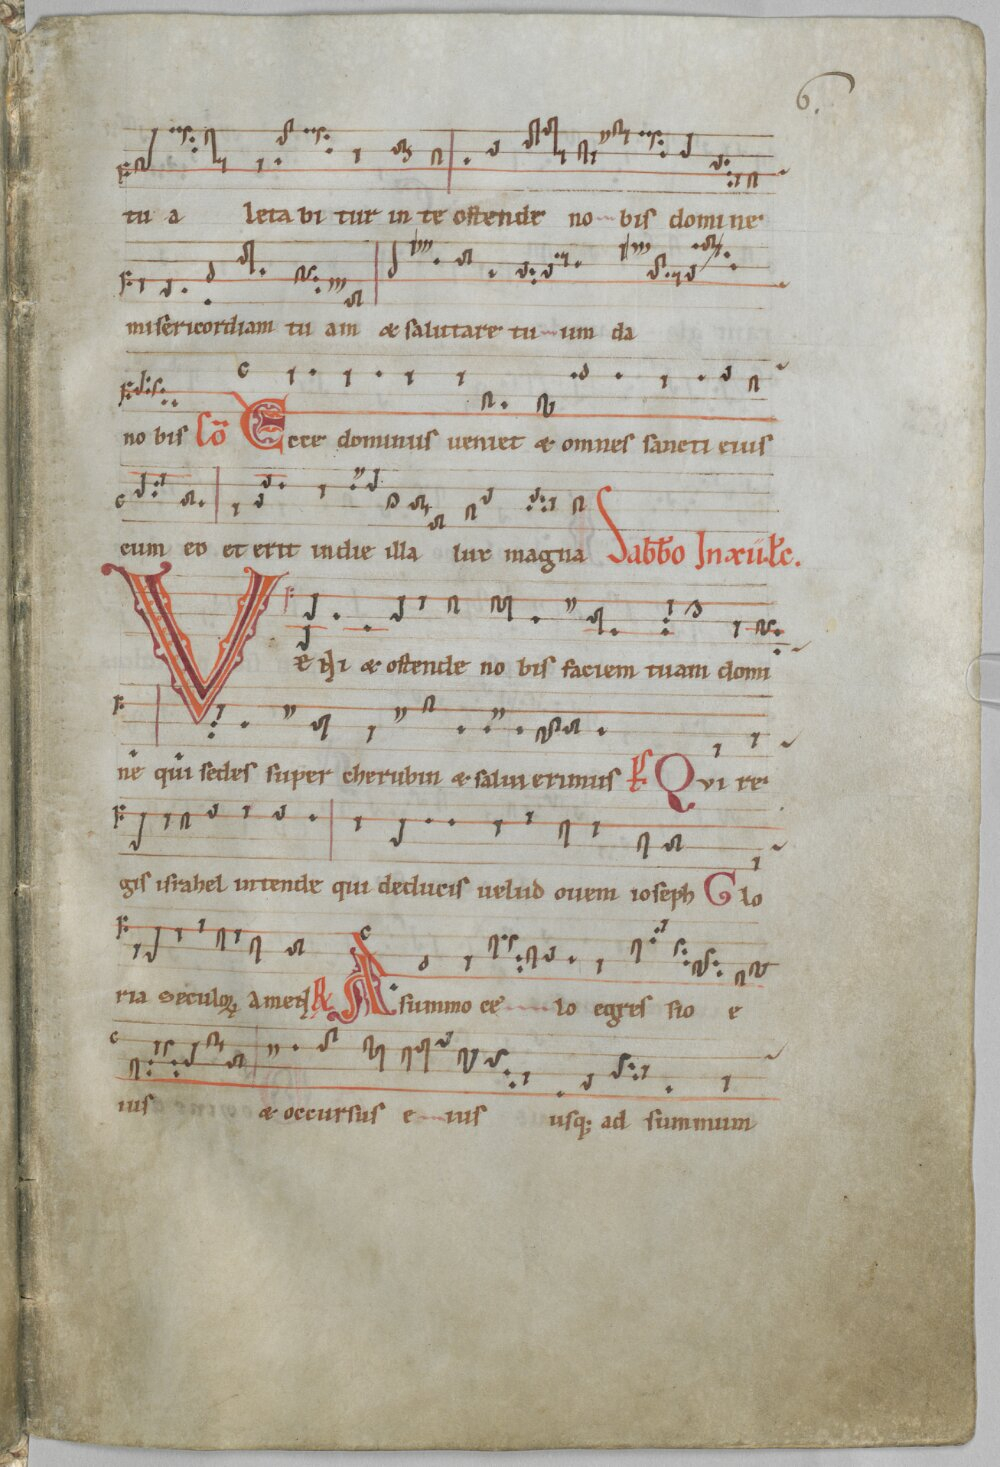 6.
tu a letabi tur in te ostende no bis domine
misericordiam tu am & salutare tu um da
no bis Cō Ecce dominus ueniet & omnes sancti eius
cum eo et erit indie illa lux magna Sabbo In xii lc.
VENI & ostende no bis faciem tuam domi
ne qui sedes super cherubin & salui erimus Ps Qvi re
gis israhel intende qui deducis uelud ouem ioseph Glo
ria seculoꝝ amen R A summo ce lo egres sio e
ius & occursus e ius usq; ad summum